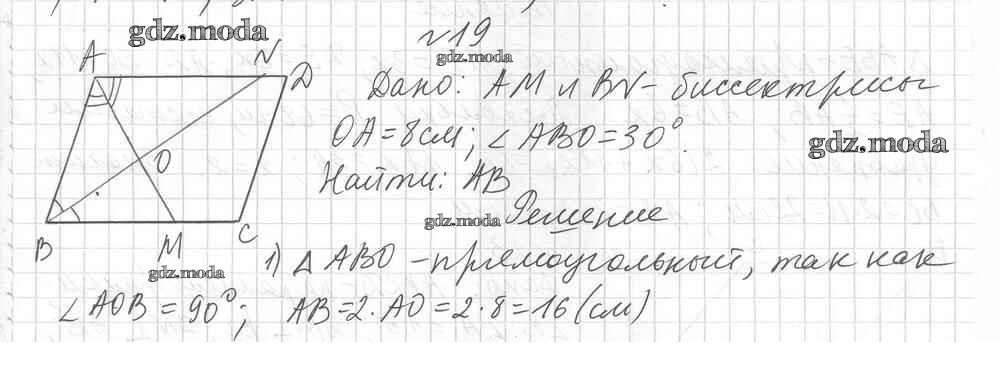 gdz.moda
№19
gdz.moda
A N D
Дано: AM и BN - биссектрисы
OA = 8 см; ∠ABO = 30°.
gdz.moda
O
Найти: AB
gdz.moda
Решение
B M C
gdz.moda
1) △ ABO - прямоугольный, так как
∠AOB = 90°; AB = 2·AO = 2·8 = 16 (см)